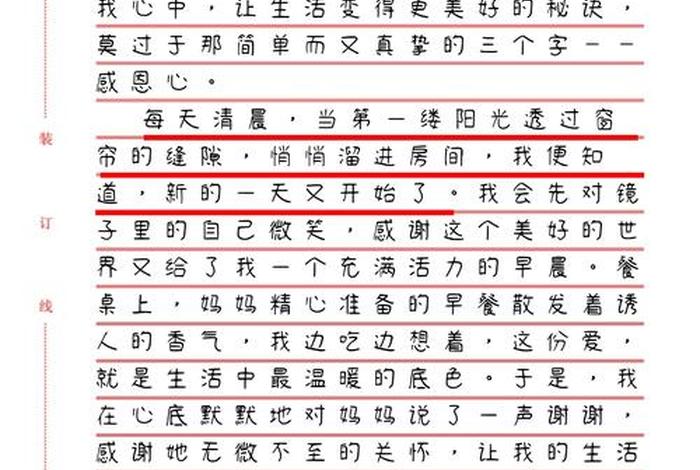 我心中，让生活变得更美好的秘诀，
莫过于那简单而又真挚的三个字——
感恩心。
每天清晨，当第一缕阳光透过窗
帘的缝隙，悄悄溜进房间，我便知
道，新的一天又开始了。我会先对镜
子里的自己微笑，感谢这个美好的世
界又给了我一个充满活力的早晨。餐
桌上，妈妈精心准备的早餐散发着诱
人的香气，我边吃边想着，这份爱，
就是生活中最温暖的底色。于是，我
在心底默默地对妈妈说了一声谢谢，
感谢她无微不至的关怀，让我的生活
装
订
线